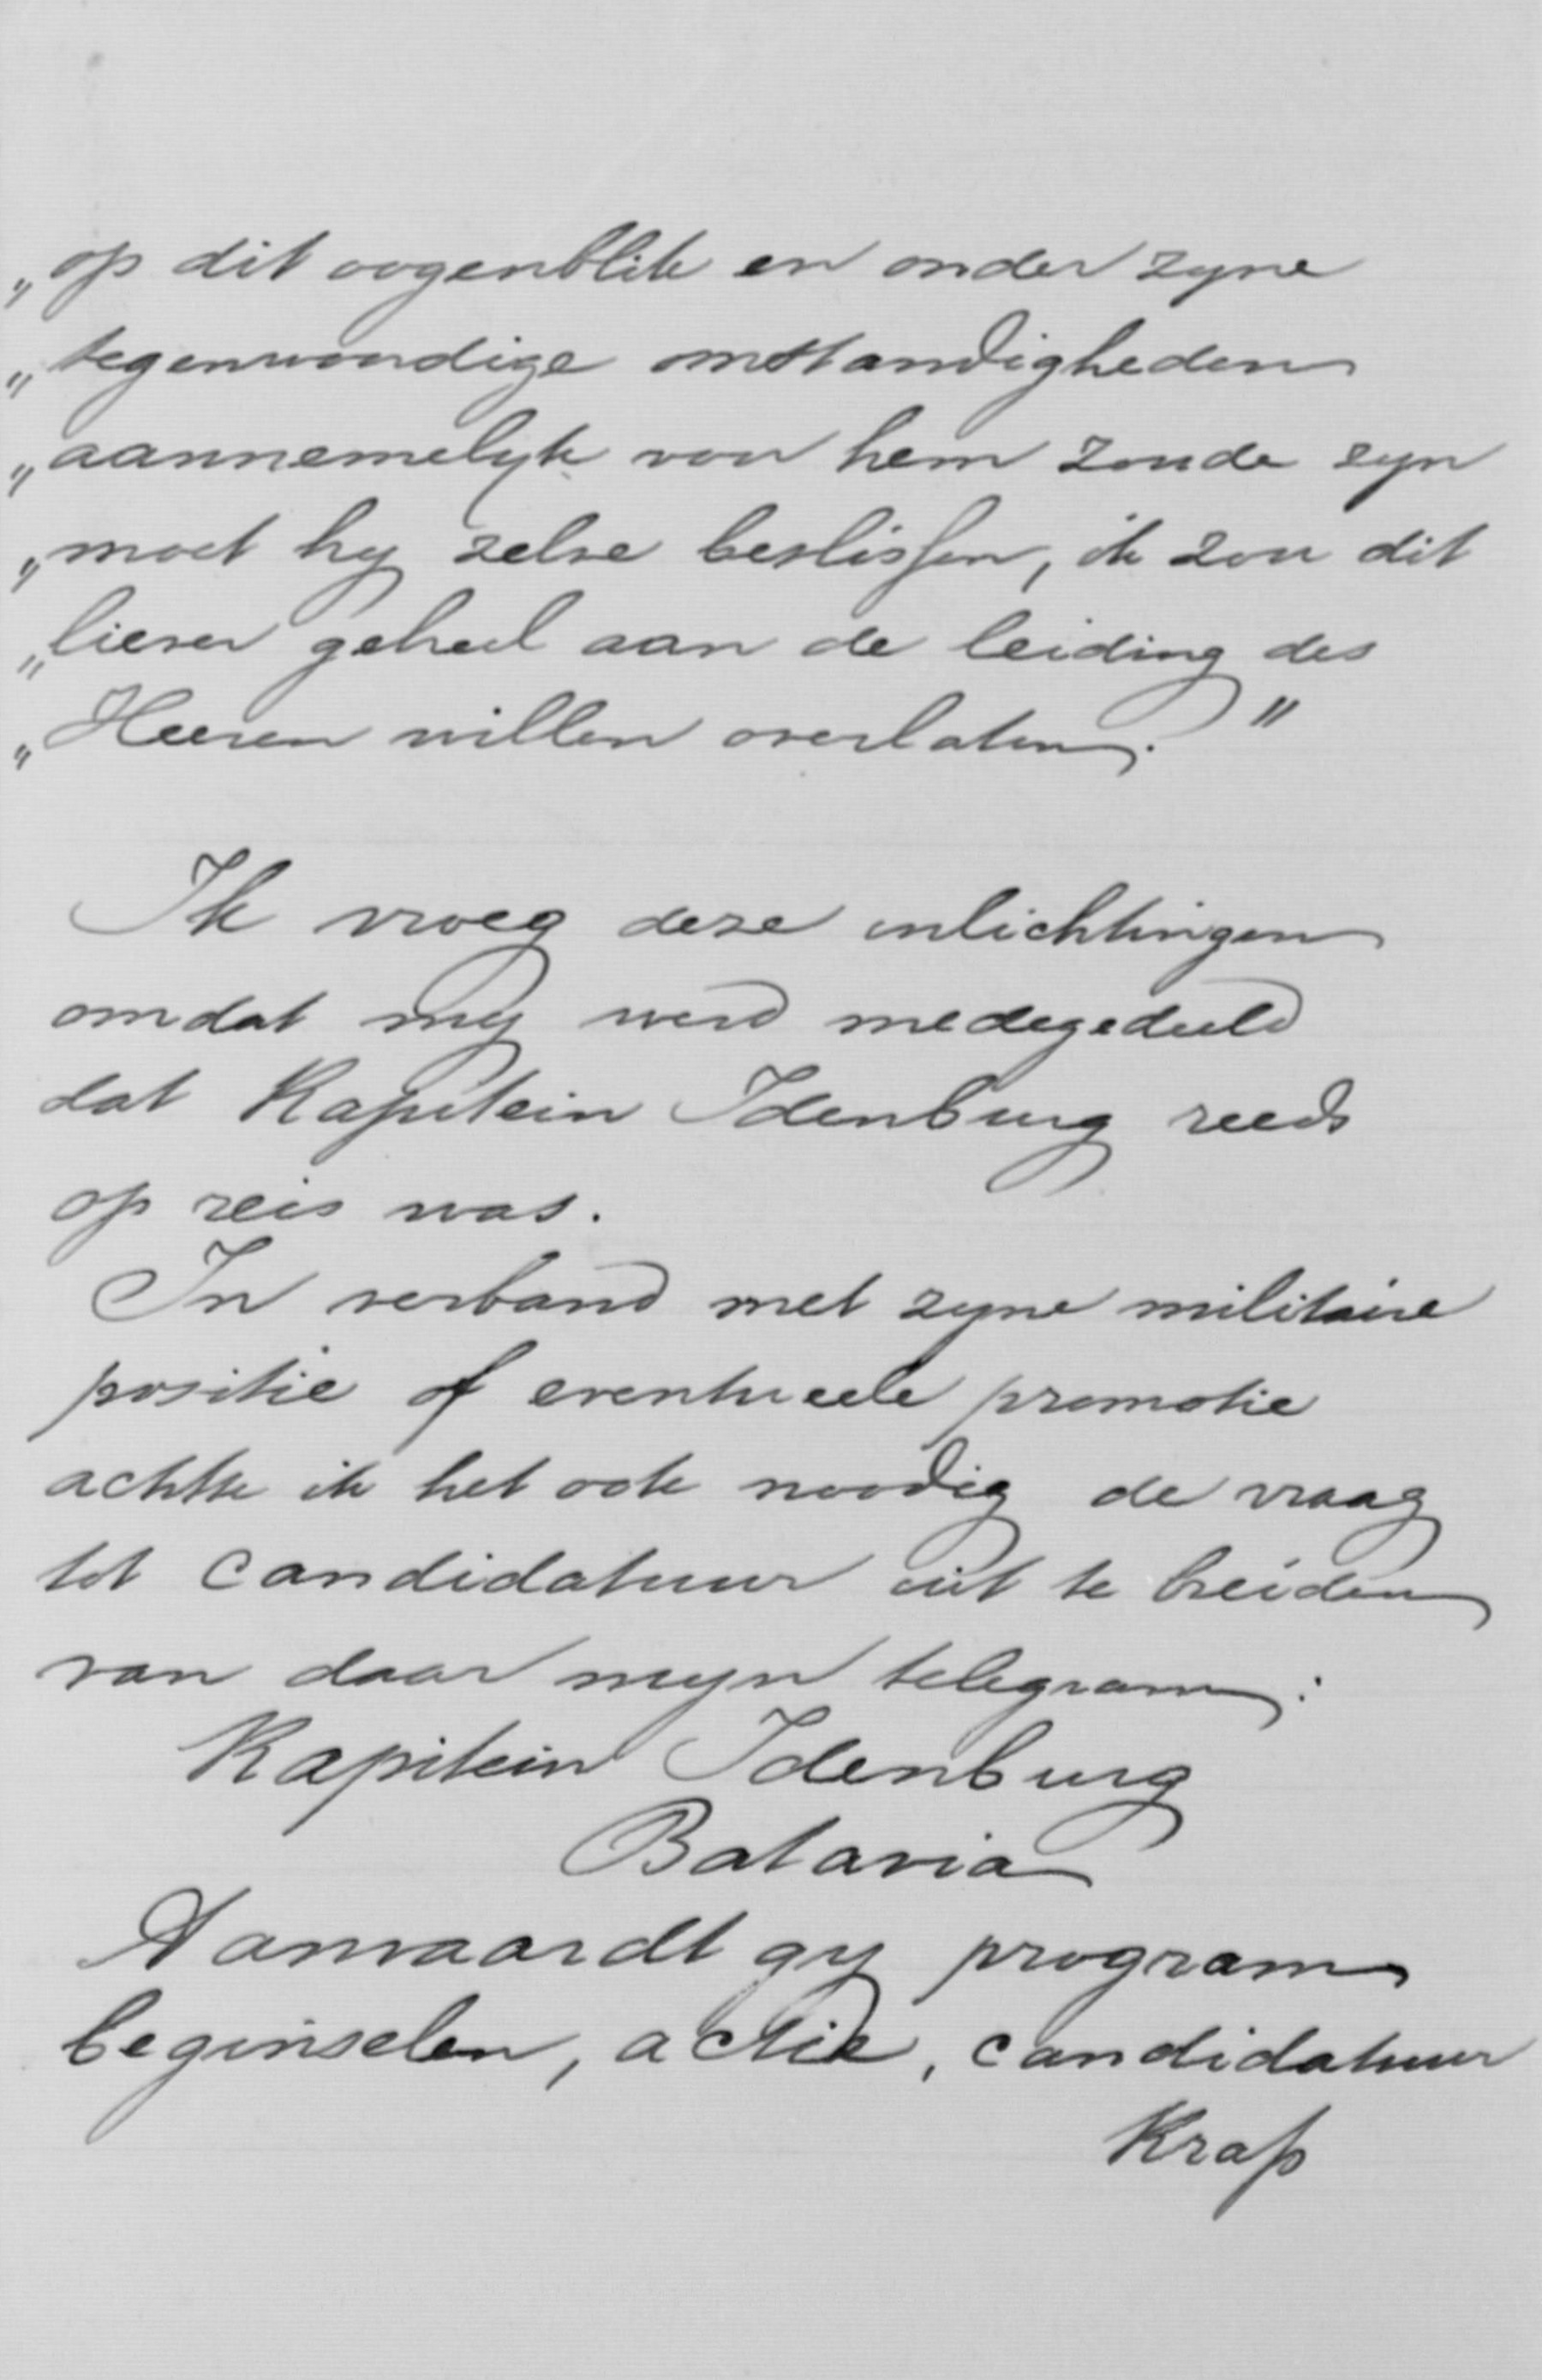 „op dit oogenblik en onder zyne
„tegenwoordige omstandigheden
„aannemelyk voor hem zoude zyn
„moet hy zelve beslissen, ik zou dit
„liever geheel aan de leiding des
„Heeren willen overlaten."
Ik vroeg deze inlichtingen
omdat my werd medegedeeld
dat Kapitein Idenburg reeds
op reis was.
In verband met zyne militaire
positie of eventueele promotie
achtte ik het ook noodig de vraag
tot candidatuur uit te breiden
van daar myn telegram:
Kapitein Idenburg
Batavia
Aanvaardt gy program
beginselen, actie, candidatuur
Krap